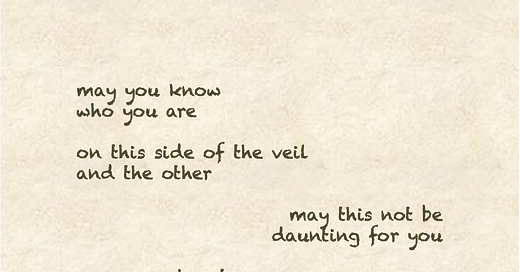 may you know
who you are
on this side of the veil
and the other
may this not be
daunting for you